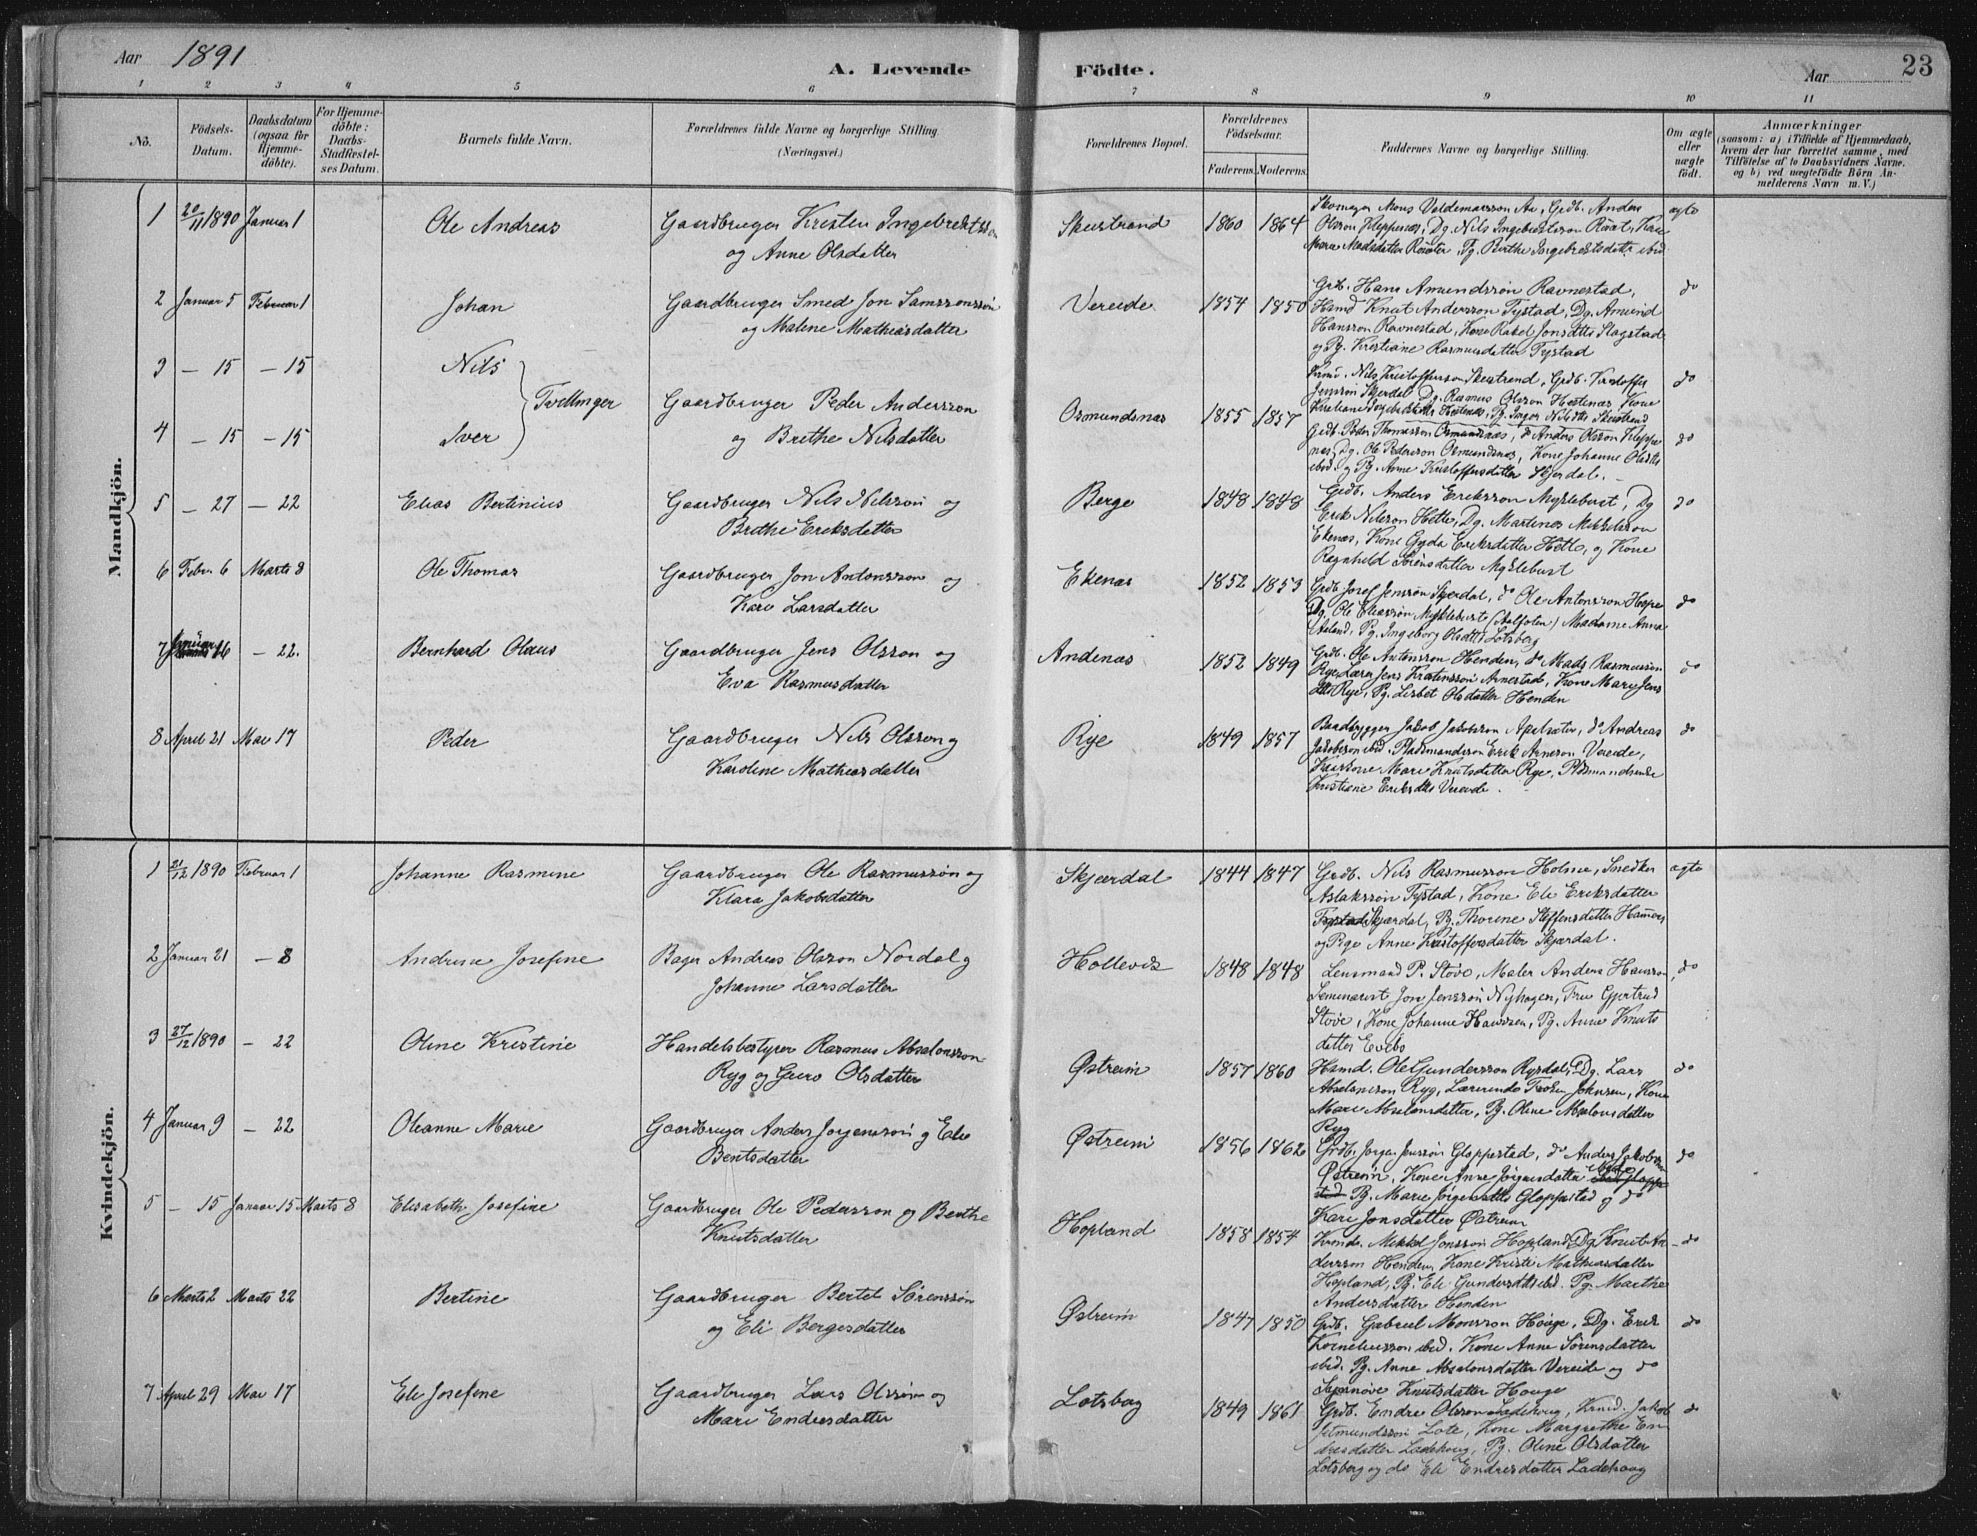 Aar 1891
A. Levende Födte.
Aar 23
1 2 3 4 5 6 7 8 9 10 11
No.
Födsels-Datum.
Daabsdatum (ogsaa for Hjemmedöbte).
For Hjemmedöbte: Daabs-Stadfæstelses Datum.
Barnets fulde Navn.
Forældrenes fulde Navne og borgerlige Stilling (Næringsvei.)
Forældrenes Bopæl.
Forældrenes Födselsaar.
Faderens. Moderens.
Faddernes Navne og borgerlige Stilling.
Om ægte eller uægte födt.
Anmærkninger
(saasom: a) i Tilfælde af Hjemmedaab, hvem der har forrettet samme, med Tilföielse af to Daabsvidners Navne, og b) ved uægtefödte Börn Anmelderens Navn m. V.)
Mandkjön.
1 20/11 1890 Januar 1 Ole Andreas Gaardbruger Kristen Ingebrektsson
og Anne Olsdatter
Skustrand 1860 1864
Skomager Mons Valdemarsson Aa, Grdb. Anders
Olsson Kleppenæs, Dg. Nils Ingebrektsson
ægte
2 Januar 5 Februar 1 Johan Gaardbruger Smed Jon Samssonssön
og Malene Mathiasdatter
Vereide 1854 1850
Grb. Hans Amundssön Ravnestad,
Knut Andersson Tystad, Dg. Amund
Hansson Ravnestad, Kone Rakel Slagstad
og Pg. Kristiane Rasmusdatter Tystad
do
3 — 15 — 15 Nils
Tvillinger
Gaardbruger Peder Andersson
4 — 15 — 15 Iver
og Brethe Nilsdatter
Osmundsnæs 1855 1857
Nils Kristoffersson Skustrand, Grdb. Kristoffer
Jenssön Skjerdal Dg. Rasmus Olsson Hestenæs Kone
Grdb. Peder Thomasson Osmundsnæs, do Anders Olsson Kleppe
næs, Dg. Ole Pedersson Osmundsnæs, Kone Johanne
ibid. og Pg. Anne Kristoffersdatter Skjerdal.
do
do
5 — 27 — 22 Elias Bertinius Gaardbruger Nils Nilsson og
Brethe Eriksdatter
Berge 1848 1848
Grdb. Anders Eriksson Myklebust, Dg
Erik Nilsson Hetle, Dg. Martinus Mikkelsson
Ekenæs, Kone Gyda Eriksdatter Hetle, og Kone
Ragnheld Sörensdatter Myklebust
do
6 Febr. 6 Marts 8 Ole Thomas Gaardbruger Jon Antonsson og
Kari Larsdatter
Ekenæs 1852 1853
Grdb. Josef Jenssön Skjerdal, do Ole Antonsson Hope
Dg. Ole Eliassön Myklebust (Aalfoten) Madame Anna
Aaland, Pg. Ingeborg Olsdtr Lotsberg
do
7 Januar 16 — 22. Bernhard Olaus Gaardbruger Jens Olsson og
Eva Rasmusdatter
Andenæs 1852 1849
Grdb. Ole Antonsson Henden, do Mads Rasmusson
Rye, Lærer Jens Kristenssön Arnestad, Kone Mari Jens
dtr Rye, Pg. Lisbet Olsdatter Henden
do
8 April 21 Mai 17 Peder Gaardbruger Nils Olsson og
Karoline Mathiasdatter
Rye 1849 1857
Baadbygger Jakob Jakobsson Apalsæter, do Andreas
Jakobsson ibid. Pladsmandssön Erik Arneson Vereide,
Mari Knutsdatter Rye,
Kristiane Eriksdtr Vereide.
do
Kvindekjön.
1 21/12 1890 Februar 1 Johanne Rasmine Gaardbruger Ole Rasmussön og
Klara Jakobsdatter
Skjærdal 1844 1847
Grdb. Nils Rasmusson Holme, Snedker
Aslakssön Tystad, Kone Eli Eriksdatter
Skjærdal, Pg. Thorine Steffensdatter
og Pige Anne Kristoffersdatter Skjærdal.
ægte
2 Januar 21 — 8 Andrine Josefine Bager Andreas Olsson Nordal og
Johanne Larsdatter
Hollevik 1848 1848
Lensmand P. Støve, Maler Anders Hansson
Seminarist Jon Jenssön Nyhagen, Fru Gjertrud
Støve, Kone Johanne Hanssen, Pg. Anne Knuts
datter Evebø
do
3 27/12 1890 — 22 Oline Kristine Handelsbestyrer Rasmus Absalonsson
Ryg og Guro Olsdatter
Østreim 1857 1860
Ole Gundersson Rygdal, Dg. Lars
Absalonsson Ryg, Lærerinde Frøken Johnsen, Kone
Mari Absalonsdatter, Pg. Oline Absalonsdatter
Ryg
do
4 Januar 9 — 22 Oleanne Marie Gaardbruger Anders Jørgenssön og Eli
Bentsdatter
Østreim 1856 1862
Grdb. Jørgen Jenssön Gloppestad, do Anders Jakobsson
Østreim, Kone Anne Jørgensdatter
Pg. Marie Jørgensdtr Gloppestad og do
Kari Jonsdatter Østreim
do
5 — 15 Januar 15 Marts 8 Elisabeth Josefine Gaardbruger Ole Pedersson og Berthe
Knutsdatter
Hopland 1858 1854
Mikkel Jonssön Hopland, Dg Knut An
dersson Henden, Kone Kristi Mathiasdatter
Hopland, Pg. Eli Gundersdtr ibid. Pg. Marthe
Andersdatter Henden
do
6 Marts 2 Marts 22 Bertine Gaardbruger Bertel Sörenssön
og Eli Bergesdatter
Østreim 1847 1850
Grdb. Gabriel Monsson Houge, Dg. Erik
Korneliussson ibid. Kone Anne Sörensdatter
ibid. Pg. Anne Absalonsdatter Vereide og do
Knutsdatter Houge
do
7 April 29 Mai 17 Eli Josefine Gaardbruger Lars Olssön og
Mari Endresdatter
Lotsberg 1849 1861
Grdb. Endre Olsson Ladehoug, Jakob
Lote, Kone Margrethe En
dresdatter Ladehoug, Pg. Oline Olsdatter
Lotsberg og do Eli Endresdatter Ladehoug
do